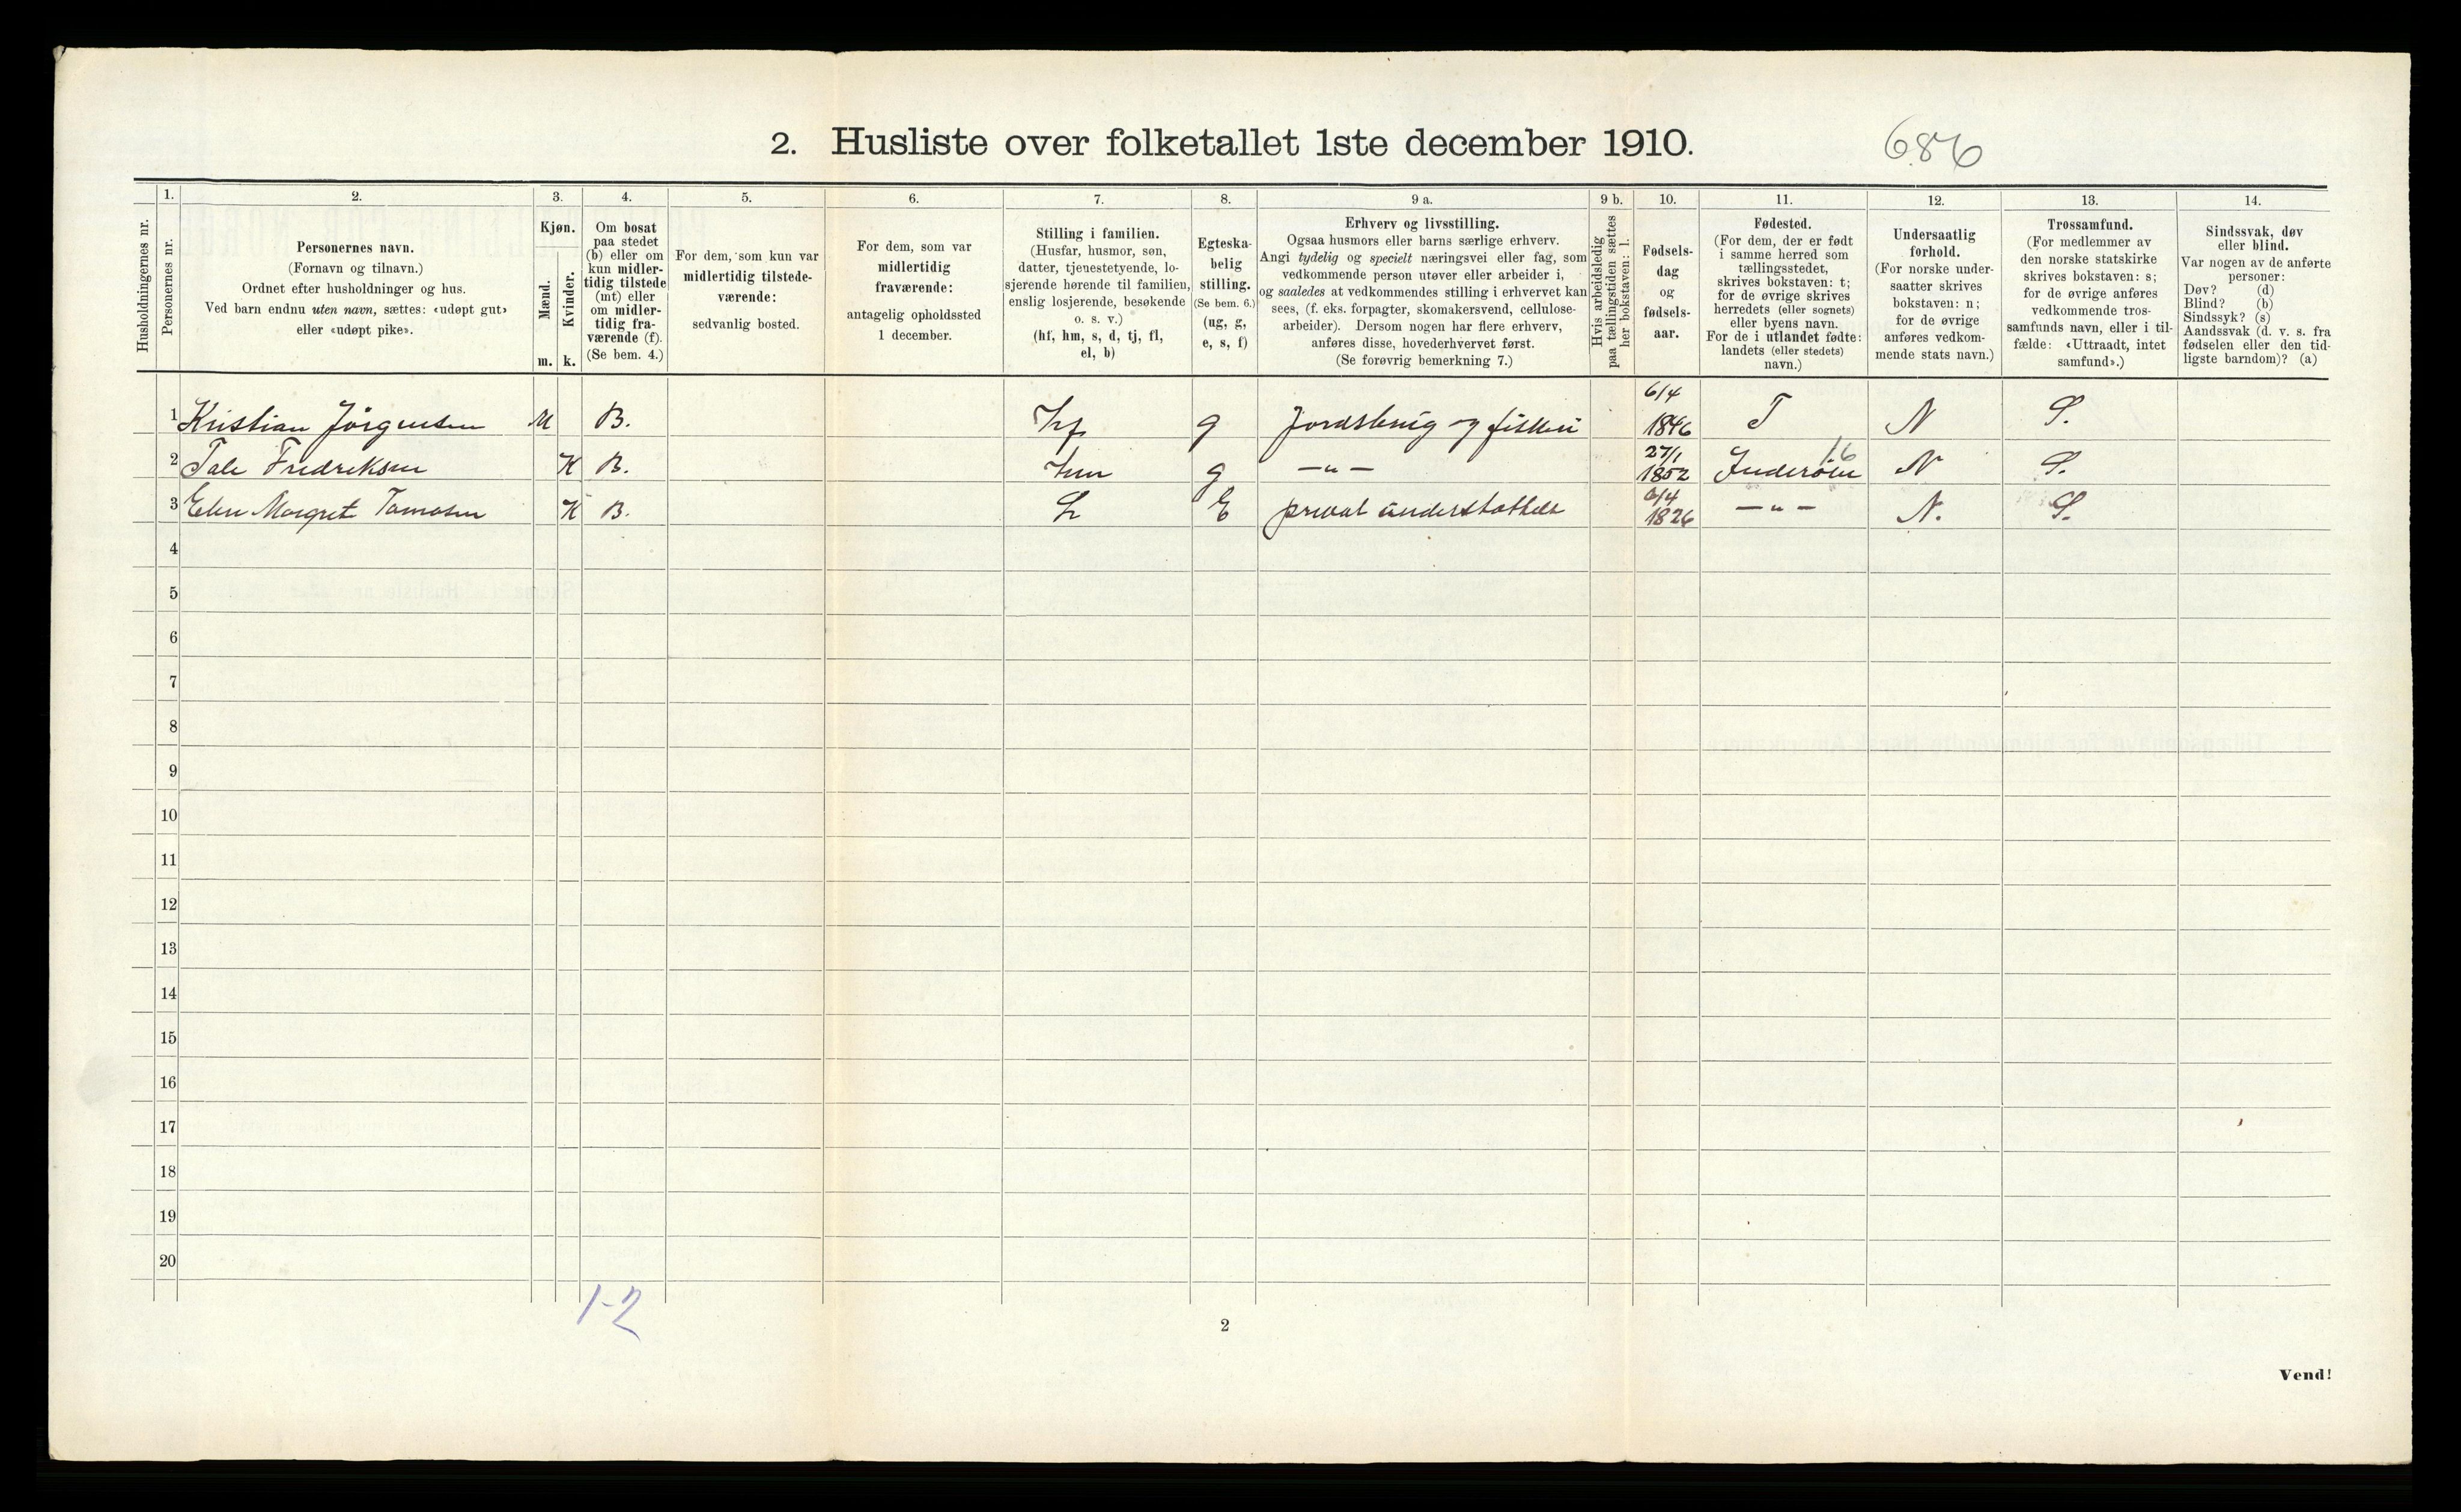 2. Husliste over folketallet 1ste december 1910.
686
Husholdningernes nr.
1.
Personernes nr.
2.
Personernes navn.
(Fornavn og tilnavn.)
Ordnet efter husholdninger og hus.
Ved barn endnu uten navn, sættes: «udøpt gut»
eller «udøpt pike».
3.
Kjøn.
Mænd.
Kvinder.
m. k.
4.
Om bosat
paa stedet
(b) eller om
kun midler-
tidig tilstede
(mt) eller
om midler-
tidig fra-
værende (f).
(Se bem. 4.)
5.
For dem, som kun var
midlertidig tilstede-
værende:
sedvanlig bosted.
6.
For dem, som var
midlertidig
fraværende:
antagelig opholdssted
1 december.
7.
Stilling i familien.
(Husfar, husmor, søn,
datter, tjenestetyende, lo-
sjerende hørende til familien,
enslig losjerende, besøkende
o. s. v.)
(hf, hm, s, d, tj, fl,
el, b)
8.
Egteska-
belig
stilling.
(Se bem. 6.)
(ug, g,
e, s, f)
9 a.
Erhverv og livsstilling.
Ogsaa husmors eller barns særlige erhverv.
Angi tydelig og specielt næringsvei eller fag, som
vedkommende person utøver eller arbeider i,
og saaledes at vedkommendes stilling i erhvervet kan
sees, (f. eks. forpagter, skomakersvend, cellulose-
arbeider). Dersom nogen har flere erhverv,
anføres disse, hovederhvervet først.
(Se forøvrig bemerkning 7.)
9 b.
Hvis arbeidsledig
paa tællingstiden sættes
her bokstaven: l.
10.
Fødsels-
dag
og
fødsels-
aar.
11.
Fødested.
(For dem, der er født
i samme herred som
tællingsstedet,
skrives bokstaven: t;
for de øvrige skrives
herredets (eller sognets)
eller byens navn.
For de i utlandet fødte:
landets (eller stedets)
navn.)
12.
Undersaatlig
forhold.
(For norske under-
saatter skrives
bokstaven: n;
for de øvrige
anføres vedkom-
mende stats navn.)
13.
Trossamfund.
(For medlemmer av
den norske statskirke
skrives bokstaven: s;
for de øvrige anføres
vedkommende tros-
samfunds navn, eller i til-
fælde: «Uttraadt, intet
samfund».)
14.
Sindssvak, døv
eller blind.
Var nogen av de anførte
personer:
Døv? (d)
Blind? (b)
Sindssyk? (s)
Aandssvak (d. v. s. fra
fødselen eller den tid-
ligste barndom)? (a)
1 Kristian Jørgensen M B. hf g Jordsbrug og fiskeri 6/4 1846 T N S.
2 Tale Fredriksen K B. hm g —„— 27/1 1852 Inderøen 16 N S.
3 Elen Margret Tomasen K B. L E privat understøttelse 6/4 1826 —„— N. S.
4
5
6
7
8
9
10
11
12
13
14
15
16
17
18
19
20
1-2
2
Vend!